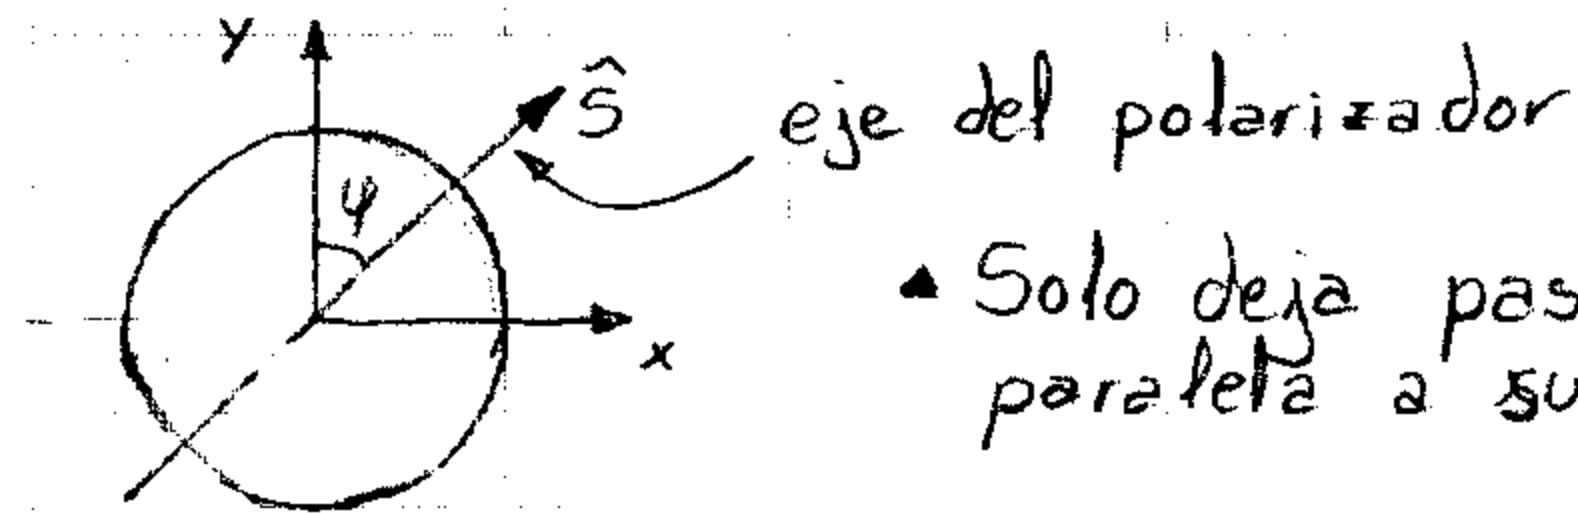 y
ŝ
eje del polarizador
φ
x
▲ Solo deja pas
paralela a su